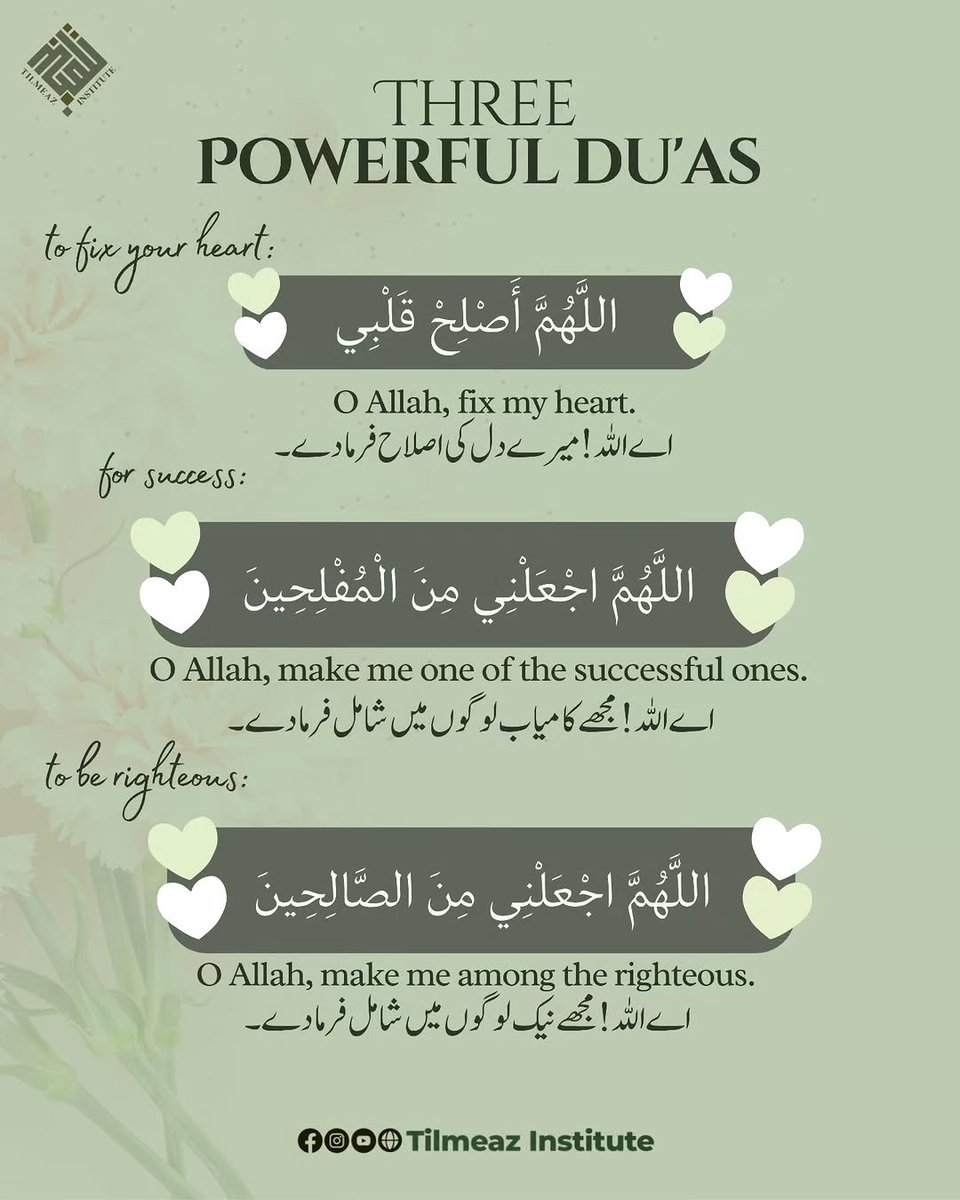 TILMEAZ INSTITUTE
THREE
POWERFUL DU'AS
to fix your heart:
اللَّهُمَّ أَصْلِحْ قَلْبِي
O Allah, fix my heart.
اے اللہ! میرے دل کی اصلاح فرما دے۔
for success:
اللَّهُمَّ اجْعَلْنِي مِنَ الْمُفْلِحِينَ
O Allah, make me one of the successful ones.
اے اللہ! مجھے کامیاب لوگوں میں شامل فرما دے۔
to be righteous:
اللَّهُمَّ اجْعَلْنِي مِنَ الصَّالِحِينَ
O Allah, make me among the righteous.
اے اللہ! مجھے نیک لوگوں میں شامل فرما دے۔
Tilmeaz Institute